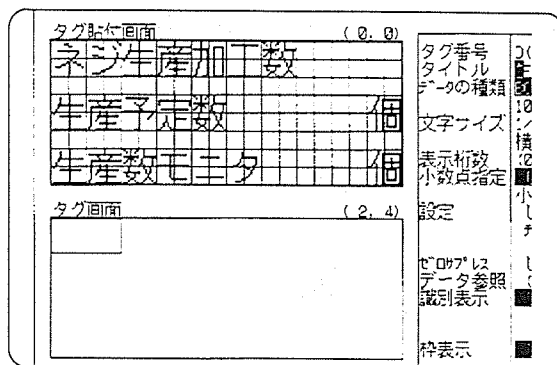 タグ貼付画面 (0, 0)
ネジ生産加工数
生産予定数 個
生産数モニタ 個
タグ画面 (2, 4)
タグ番号
タイトル
データの種類
文字サイズ
表示桁数
小数点指定
設定
ゼロサプレス
データ参照
識別表示
枠表示